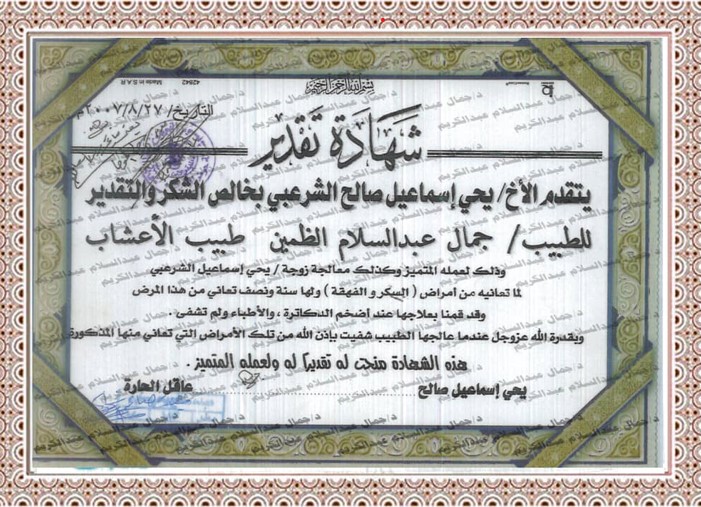 بسم الله الرحمن الرحيم
Made in S.A.R
42542
التاريخ/ ٢٠٠٧/٨/٢٧م
شهادة تقدير
يتقدم الأخ/ يحي إسماعيل صالح الشرعبي بخالص الشكر والتقدير
للطبيب/ جمال عبدالسلام الظمين طبيب الأعشاب
وذلك لعمله المتميز وكذلك معالجة زوجة / يحي إسماعيل الشرعبي
لما تعانيه من أمراض ( السكر و الفهقة ) ولها سنة ونصف تعاني من هذا المرض
وقد قمنا بعلاجها عند أضخم الدكاترة ، والأطباء ولم تشفى .
وبقدرة الله عزوجل عندما عالجها الطبيب شفيت بإذن الله من تلك الأمراض التي تعاني منها المذكورة
هذه الشهادة منحت له تقديراً له ولعمله المتميز .
يحي إسماعيل صالح عاقل الحارة
د/جمال عبدالسلام عبدالكريم